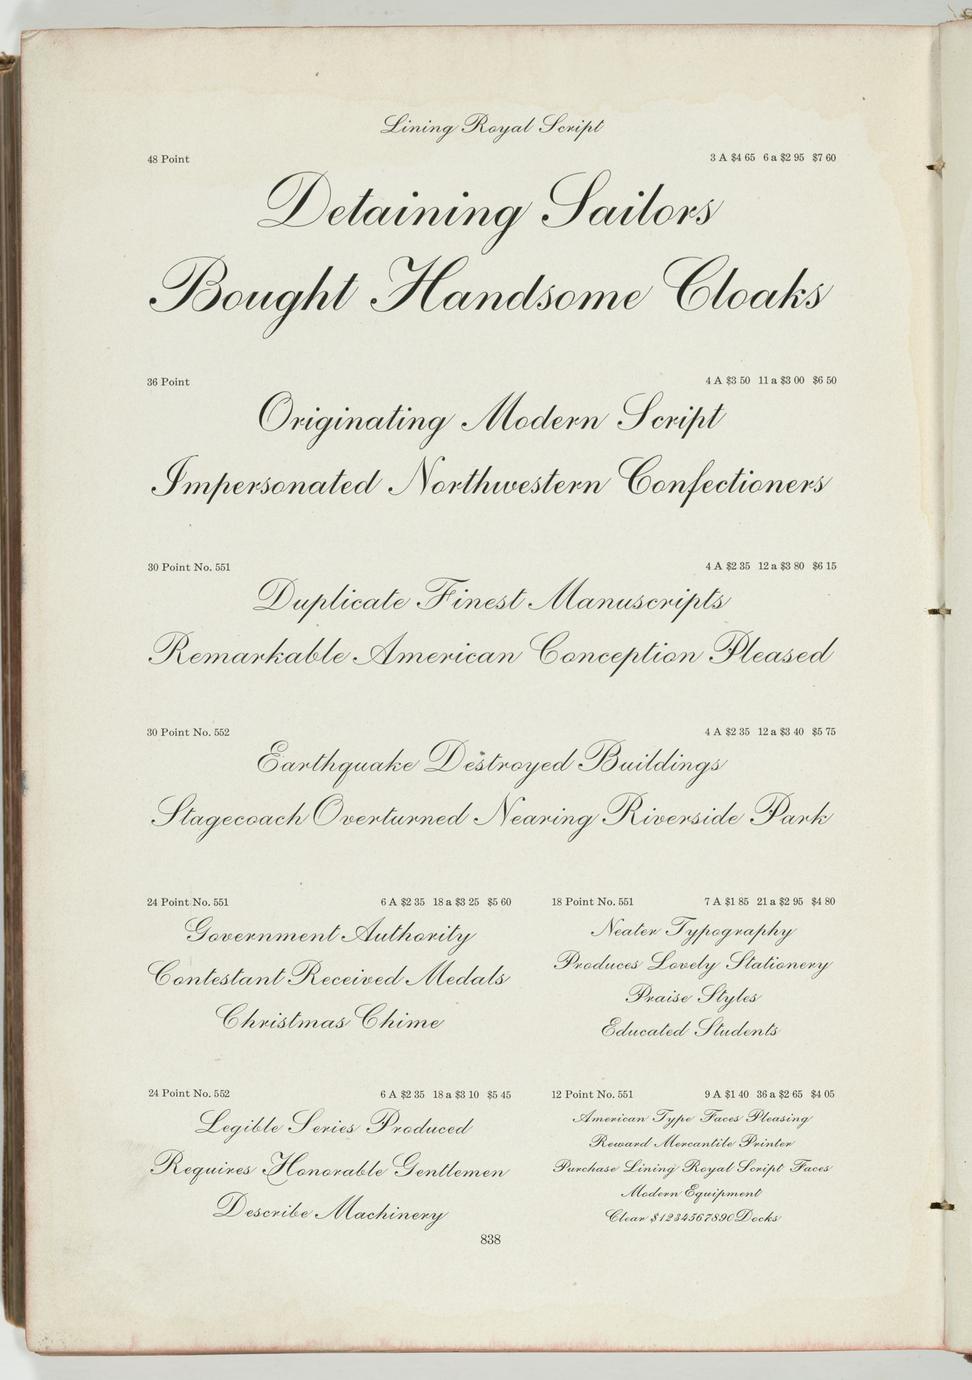 Lining Royal Script
48 Point 3 A $4 65 6 a $2 95 $7 60
Detaining Sailors
Bought Handsome Cloaks
36 Point 4 A $3 50 11 a $3 00 $6 50
Originating Modern Script
Impersonated Northwestern Confectioners
30 Point No. 551 4 A $2 35 12 a $3 80 $6 15
Duplicate Finest Manuscripts
Remarkable American Conception Pleased
30 Point No. 552 4 A $2 35 12 a $3 40 $5 75
Earthquake Destroyed Buildings
Stagecoach Overturned Nearing Riverside Park
24 Point No. 551 6 A $2 35 18 a $3 25 $5 60
Government Authority
Contestant Received Medals
Christmas Chime
18 Point No. 551 7 A $1 85 21 a $2 95 $4 80
Neater Typography
Produces Lovely Stationery
Praise Styles
Educated Students
24 Point No. 552 6 A $2 35 18 a $3 10 $5 45
Legible Series Produced
Requires Honorable Gentlemen
Describe Machinery
12 Point No. 551 9 A $1 40 36 a $2 65 $4 05
American Type Faces Pleasing
Reward Mercantile Printer
Purchase Lining Royal Script Faces
Modern Equipment
Clear $1234567890 Docks
838